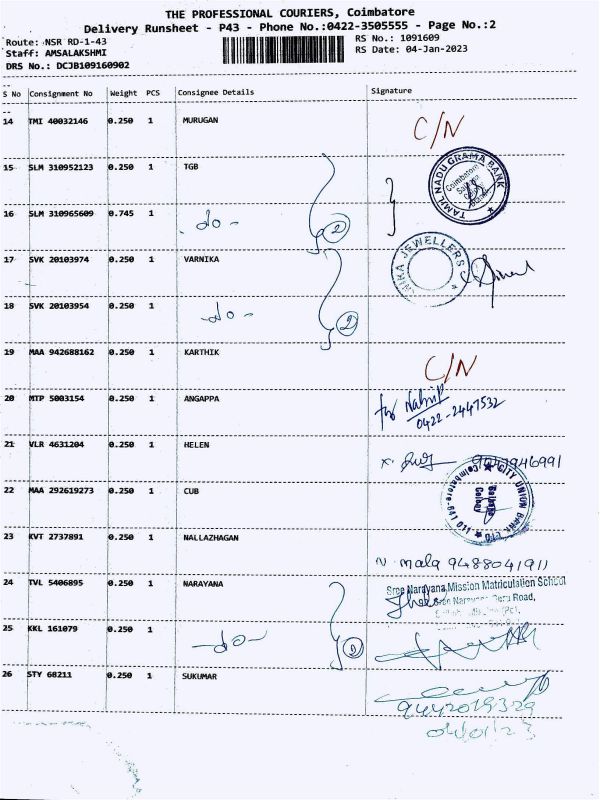 THE PROFESSIONAL COURIERS, Coimbatore
Delivery Runsheet - P43 - Phone No.:0422-3505555 - Page No.:2
Route: NSR RD-1-43 RS No.: 1091609
Staff: AMSALAKSHMI RS Date: 04-Jan-2023
DRS No.: DCJB109160902
S No Consignment No Weight PCS Consignee Details Signature
14 TMI 40032146 0.250 1 MURUGAN C/N
15 SLM 310952123 0.250 1 TGB
TAMIL NADU GRAMA BANK
Coimbatore
16 SLM 310965609 0.745 1 - do - 2
17 SVK 20103974 0.250 1 VARNIKA
JEWELLERS
18 SVK 20103954 0.250 1 - do - 2
19 MAA 942688162 0.250 1 KARTHIK C/N
20 MTP 5003154 0.250 1 ANGAPPA for
0422-2447532
21 VLR 4631204 0.250 1 HELEN
22 MAA 292619273 0.250 1 CUB
CITY UNION BANK LTD
Coimbatore
23 KVT 2737891 0.250 1 NALLAZHAGAN N. mala 9488041911
24 TVL 5406895 0.250 1 NARAYANA Sree Narayana Mission Matriculation School
Sree Narayana Guru Road,
25 KKL 161079 0.250 1 - do - 2
26 STY 68211 0.250 1 SUKUMAR
9442019329
04/01/23